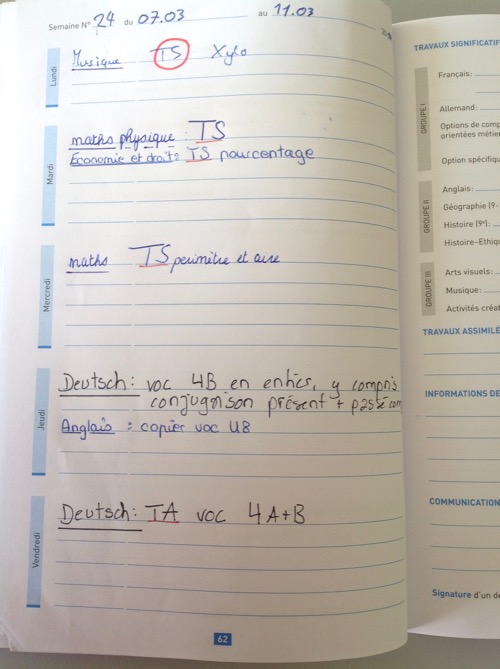 Semaine N° 24 du 07.03 au 11.03
Lundi
Musique TS Xylo
Mardi
maths physique : TS
Economie et droit: TS pourcentage
Mercredi
maths TS périmètre et aire
Jeudi
Deutsch: voc 4B en entier, y compris
conjugaison présent + passé com
Anglais : copier voc U8
Vendredi
Deutsch: TA voc 4A+B
62
TRAVAUX SIGNIFICATIF
GROUPE I
Français:
Allemand:
Options de comp
orientées métie
Option spécifiqu
GROUPE II
Anglais:
Géographie (9-
Histoire (9e):
Histoire-Ethiqu
GROUPE III
Arts visuels:
Musique:
Activités créat
TRAVAUX ASSIMILÉ
INFORMATIONS DE
COMMUNICATION
Signature d'un de